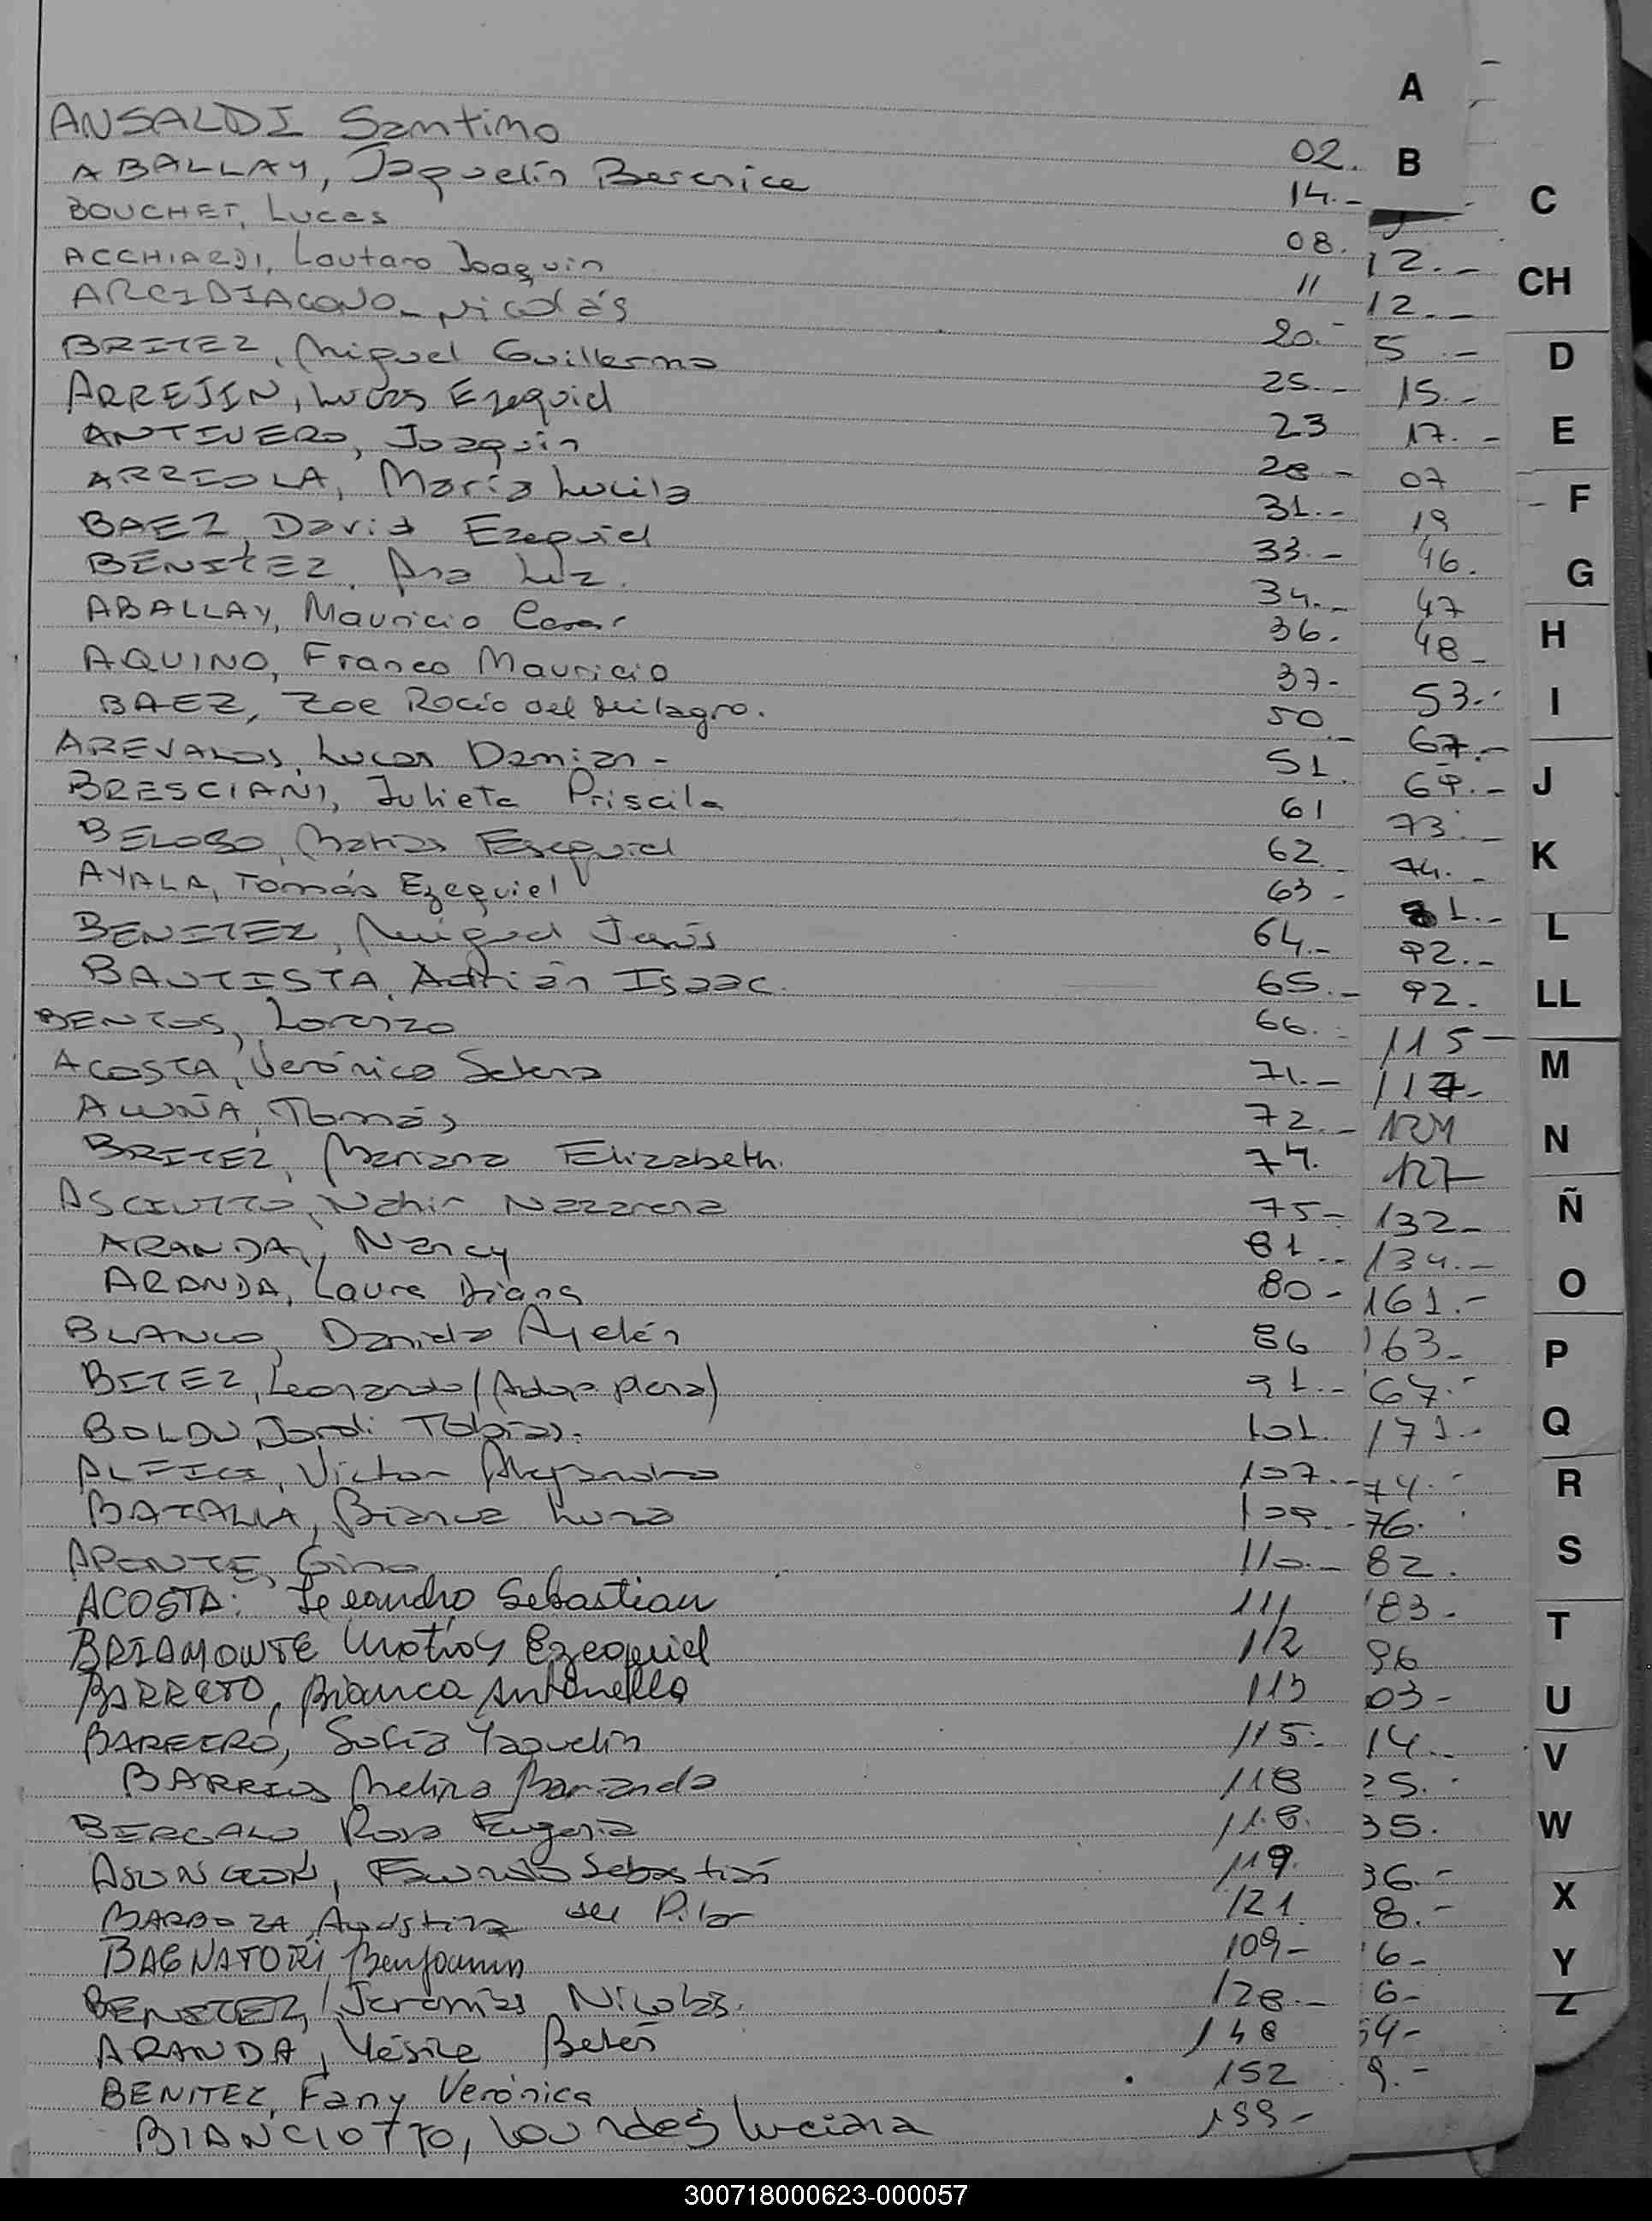 ANSALDI Santino 02.
ABALLAY, Jaquelín Berenice 14.-
BOUCHET, Lucas 08.
ACCHIARDI, Lautaro Joaquin 11
ARCIDIACONO- Nicolás 20.-
BRITEZ, Miguel Guillermo 25.-
ARREJIN, Lucas Ezequiel 23
ANTIVERO, Joaquín 28-
ARRIOLA, María Lucila 31.-
BAEZ, David Ezequiel 33.-
BENITEZ, Ana Luz. 34.-
ABALLAY, Mauricio Cesar 36.
AQUINO, Franco Mauricio 37-
BAEZ, Zoe Rocío del Milagro. 50.-
AREVALOS, Lucas Damian- 51.
BRESCIANI, Julieta Priscila 61
BELOSO, Matias Esequiel 62.
AYALA, Tomás Ezequiel 63-
BENITEZ, Miguel Jesús 64.-
BAUTISTA, Adrián Isaac. 65.-
BENTOS, Lorenzo 66.-
ACOSTA, Verónica Selena 71.-
ACUÑA, Tomás 72.-
BRITEZ, Mariana Elizabeth. 74.
ASCIUTTO, Nahir Nazarena 75-
ARANDA, Nancy 81.-
ARANDA, Laura Diana 80-
BLANCO, Daniela Ayelén 86
BITEZ, Leonardo (Adop. plena) 91.-
BOLDU, Jordi Tobías. 101.
ALFICI, Victor Alejandro 107.-
BATALLA, Bianca Luna 109.-
APONTE, Gino 110.-
ACOSTA: Leandro Sebastian 111
BRIAMONTE Matías Ezequiel 112
BARRETO, Bianca Antonella 113
BAREIRO, Sofía Yaquelin 115.
BARRIOS Melina 118
BERGALO Rosa Eugenia 118.
ASUNCION, Facundo Sebastián 119.
BARBOZA, Agustina del Pilar 121
BAGNATORI, Benjamin 109-
BENITEZ, Jeremías Nicolás. 128.-
ARANDA, Yésica Belén 148
BENITEZ, Fany Verónica 152
BIANCIOTTO, Lourdes Luciana 199-
12.-
12.-
5.-
15.-
17.-
07
19
46.
47
48-
53.-
67.-
69.-
73.-
74.-
81.-
92.-
92.
115-
117-
124
127
132-
134.-
161.-
163-
67.-
171.-
74.-
76.
82.
83.
96
03-
14.-
25.-
35.
36.-
8.-
6-
6-
54-
9.-
A
B
C
CH
D
E
F
G
H
I
J
K
L
LL
M
N
Ñ
O
P
Q
R
S
T
U
V
W
X
Y
Z
300718000623-000057